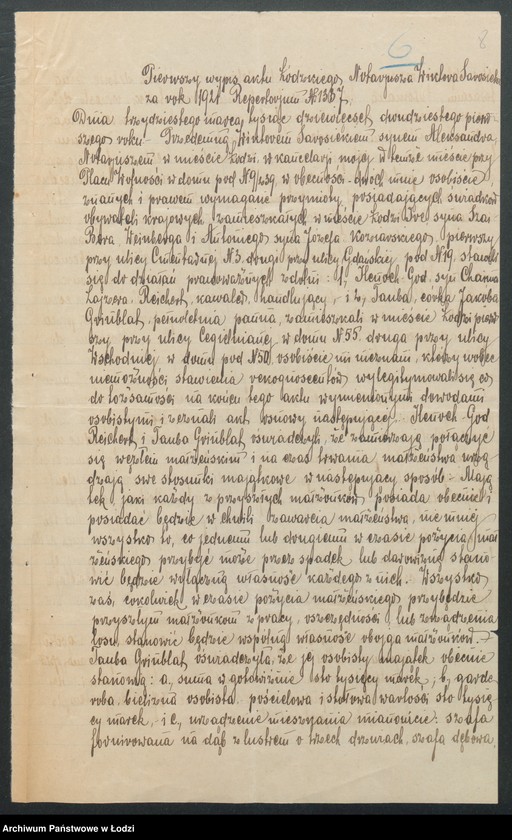 6
8
Pierwszy wypis aktu Łódzkiego Notarjusza Wiktora Sarosieka
za rok 1921 Repertorjum № 1367.
Dnia trzydziestego marca, tysiąc dziewięćset dwudziestego pierw-
szego roku. Przedemną, Wiktorem Sarosiekiem, synem Aleksandra,
Notarjuszem w mieście Łodzi, w kancelarji mojej w temże mieście przy
Placu Wolności w domu pod № 9, w obecności dwóch mnie osobiście
znanych i prawem wymagane przymioty posiadających świadków
obywateli krajowych, zamieszkałych w mieście Łodzi: syna
Weinberga i Antoniego syna Józefa, pierwszy
przy ulicy Cmentarnej № 3, drugi przy ulicy Gdańskiej pod № 19, stawili
się do działań prawoważnych zdolni: 1, Henoch-God, syn Chaima
Lajzera, Reichert, kawaler, handlujący, i 2, Tauba, córka Jakóba
Grünblat, pełnoletnia panna, zamieszkali w mieście Łodzi pierw-
szy przy ulicy Cegielnianej w domu № 55, druga przy ulicy
Wschodniej w domu pod № 50, osobiście mi nieznani, którzy wobec
niemożności stawienia rekognoscentów wylegitymowali się co
do tożsamości na końcu tego aktu wymienionymi dowodami
osobistymi i zeznali akt osnowy następującej: Henoch-God
Reichert i Tauba Grünblat oświadczyli, że zamierzają połączyć
się węzłem małżeńskim i na czas trwania małżeństwa urzą-
dzają swe stosunki majątkowe w następujący sposób: Mają-
tek, jaki każdy z przyszłych małżonków posiada obecnie i
posiadać będzie w chwili zawarcia małżeństwa, nie mniej
wszystko to, co jednemu lub drugiemu w czasie pożycia mał-
żeńskiego przybyć może przez spadek lub darowiznę, stano-
wić będzie wyłączną własność każdego z nich. Wszystko
zaś, cokolwiek w czasie pożycia małżeńskiego przybędzie
przyszłym małżonkom z pracy, oszczędności, lub zrządzenia
losu, stanowić będzie wspólną własność obojga małżonków.
Tauba Grünblat oświadczyła, że jej osobisty majątek obecnie
stanowią: a, suma w gotowiźnie sto tysięcy marek; b, garde-
roba, bielizna osobista, pościelowa i stołowa wartości sto tysię-
cy marek, i c, urządzenie mieszkania mianowicie: szafa
fornirowana na dąb z lustrem o trzech drzwiach, szafa dębowa,
Archiwum Państwowe w Łodzi